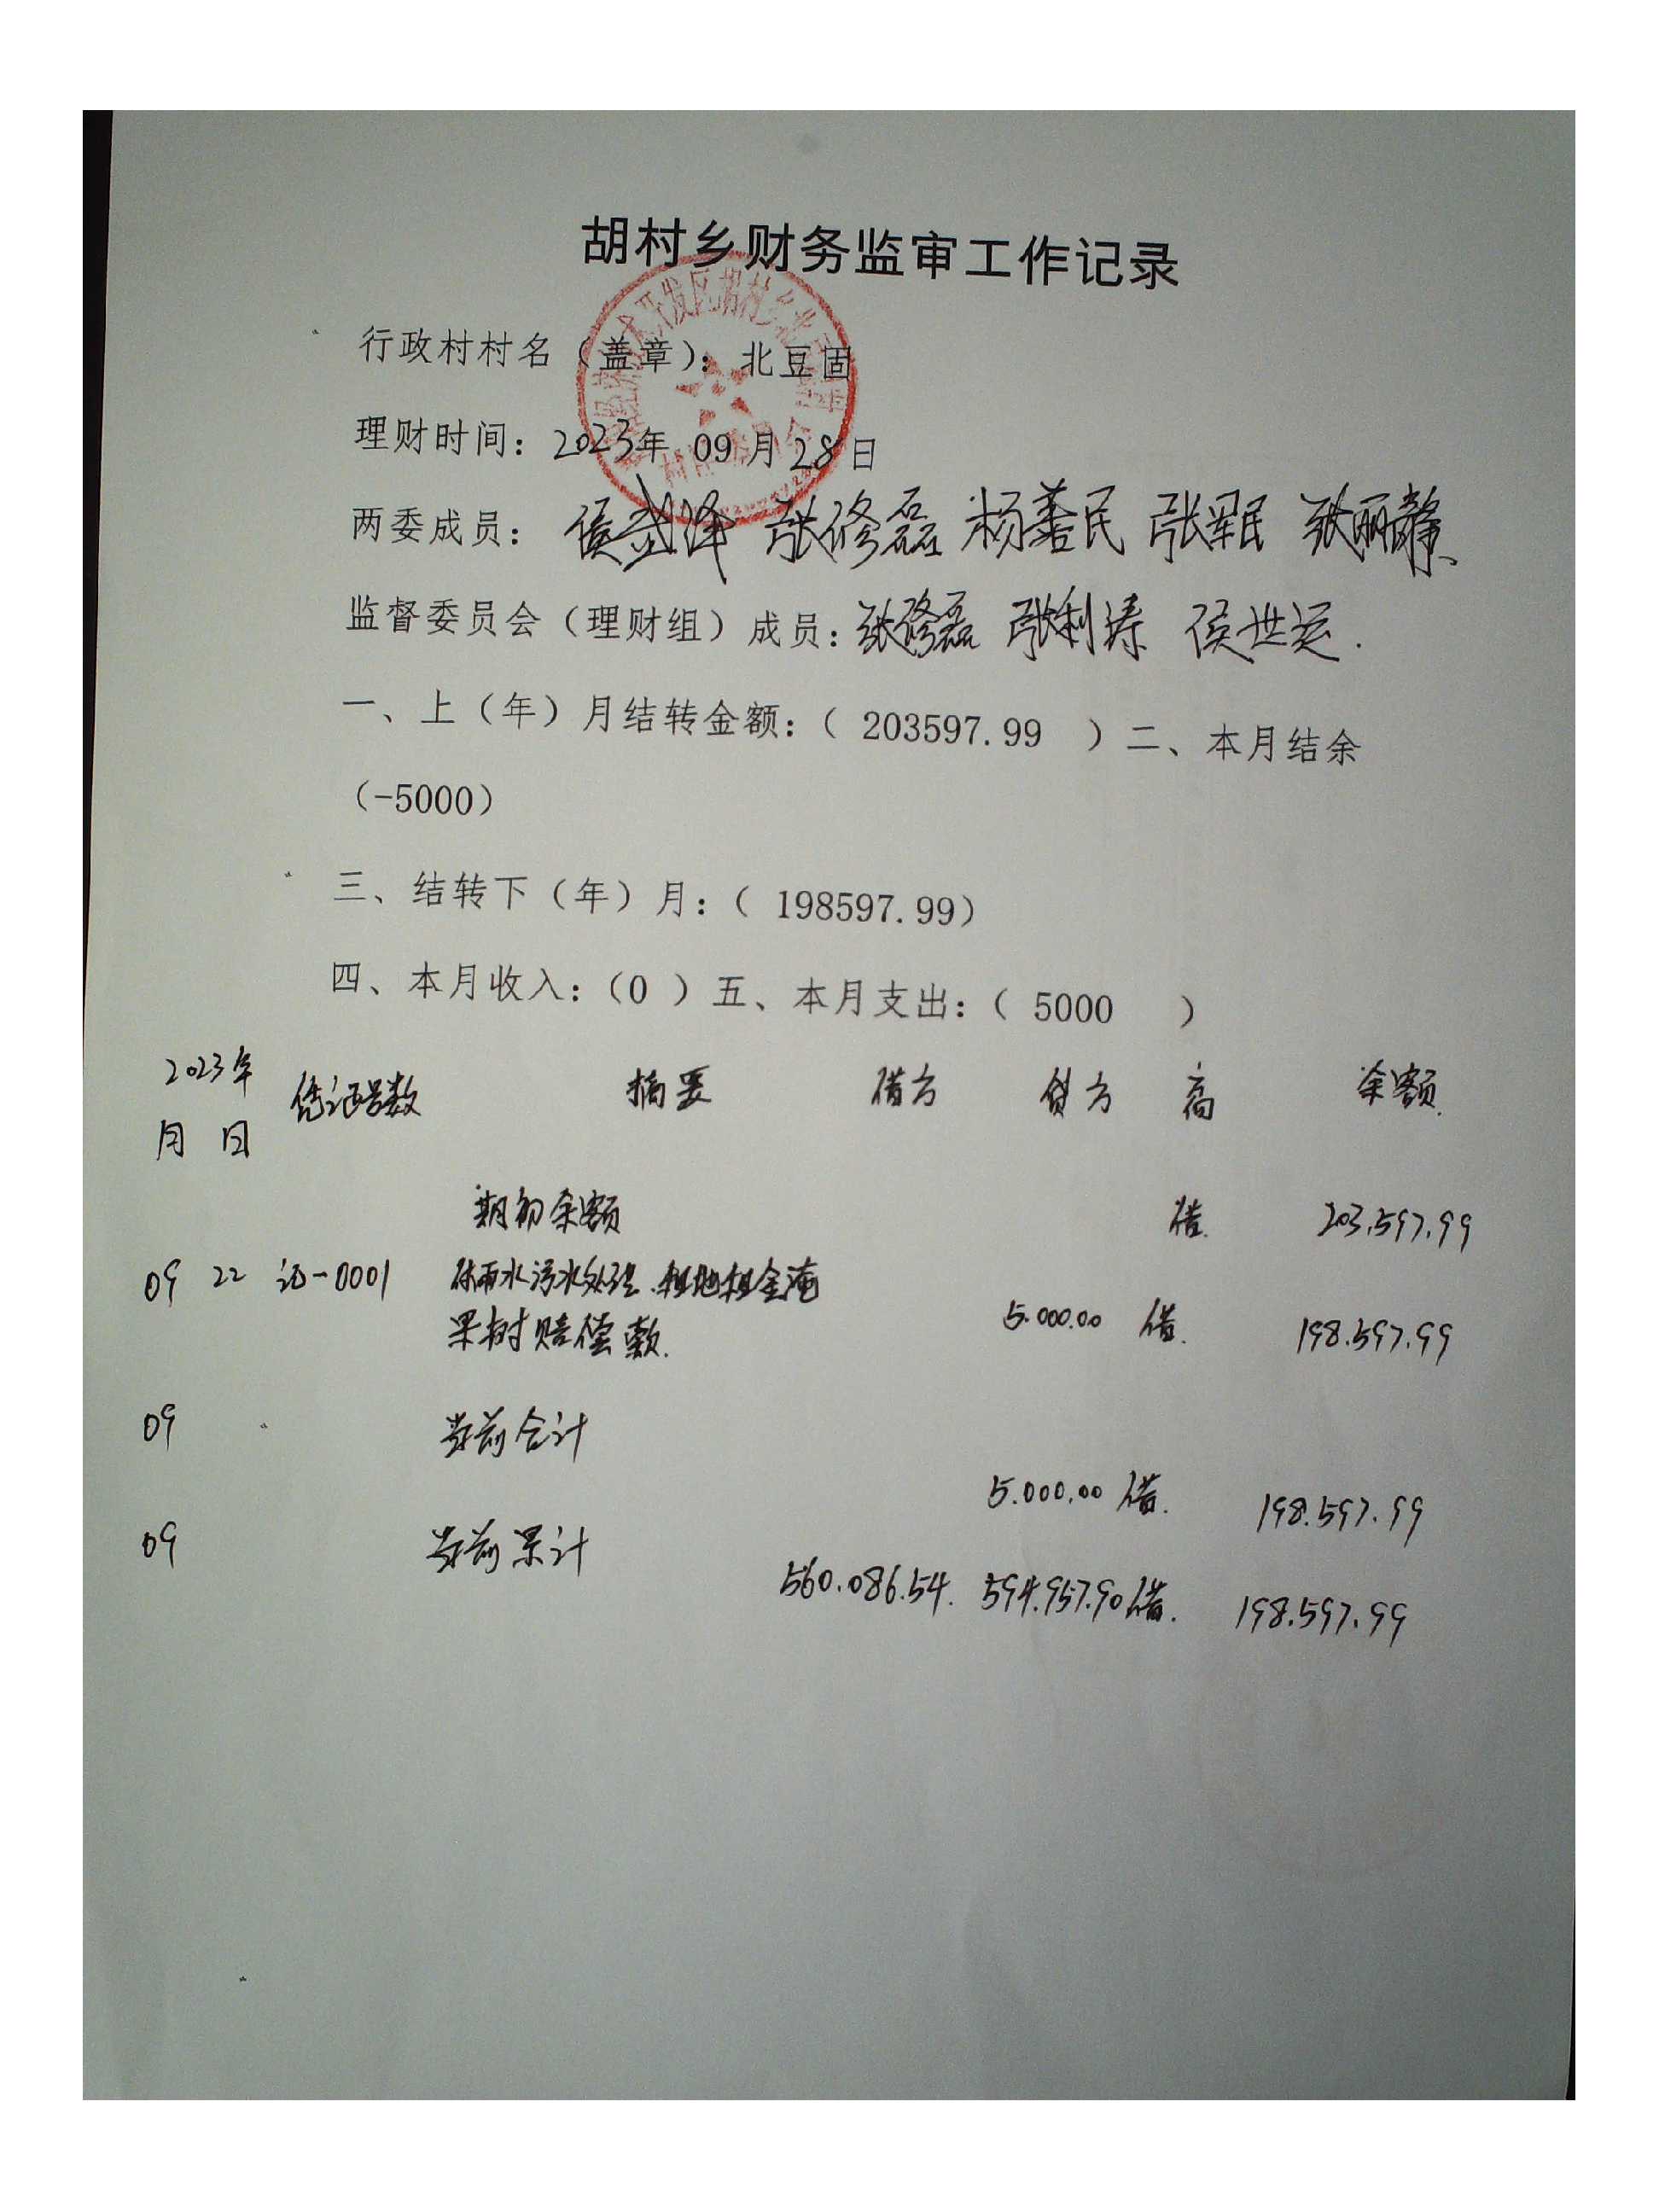 胡村乡财务监审工作记录
行政村村名（盖章）：北豆固
理财时间：2023年 09月28日
两委成员：侯 泽 张修磊 杨善民 张军民 张丽静、
监督委员会（理财组）成员：张修磊 张利涛 侯世运.
一、上（年）月结转金额：（ 203597.99 ）二、本月结余
（-5000）
三、结转下（年）月：（ 198597.99）
四、本月收入：（0 ）五、本月支出：（ 5000 ）
2023年 凭证号数 摘要 借方 贷方 余额
月 日
期初余额 借 203,597.99
09 22 记-0001 付雨水污水处理.租地租金淹
果树赔偿款. 5.000.00 借. 198.597.99
09 当前合计
5.000.00 借. 198.597.99
09 当前累计
560.086.54. 594.957.90 借. 198.597.99